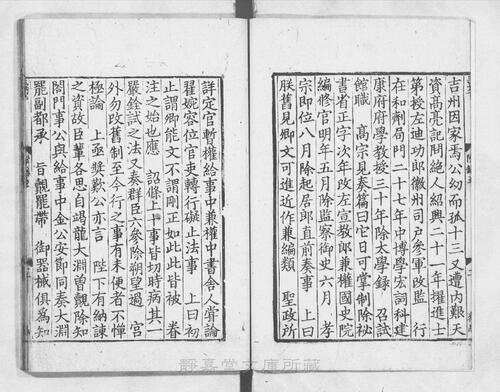 吉州因家焉公幼而孤十三又遭内艱天
資高亮記問絕人紹興二十一年擢進士
第授左迪功郎徽州司戸參軍改監 行
在和劑局門二十七年中博學宏詞科建
康府府學教授三十年除太學録 召試
館職 髙宗見奏篇曰它日可掌制除秘
書省正字次年改左宣教郎兼權國史院
編修官明年五月除監察御史六月 孝
宗即位八月除起居郎直前奏事 上曰
朕舊見卿文可進近作兼編類 聖政所
詳定官暫權給事中兼權中書舎人嘗論
翟婉容位官吏轉行礙止法事 上曰初
止謂卿能文不謂剛正如此此皆被 眷
注之始也應 詔條上十事皆切時病其一
嚴銓試之法又奏群臣六參除朔望過 宮
外勿改舊制至今行之事有未便者不憚
極論 上奬歎公亦言 陛下有納諫
之資故臣輩各思自竭龍大淵曽覿除知
閤門事公與給事中金公安節同奏大淵
罷副都承 旨覿罷帶 御器械俱爲知
靜嘉堂文庫所蔵